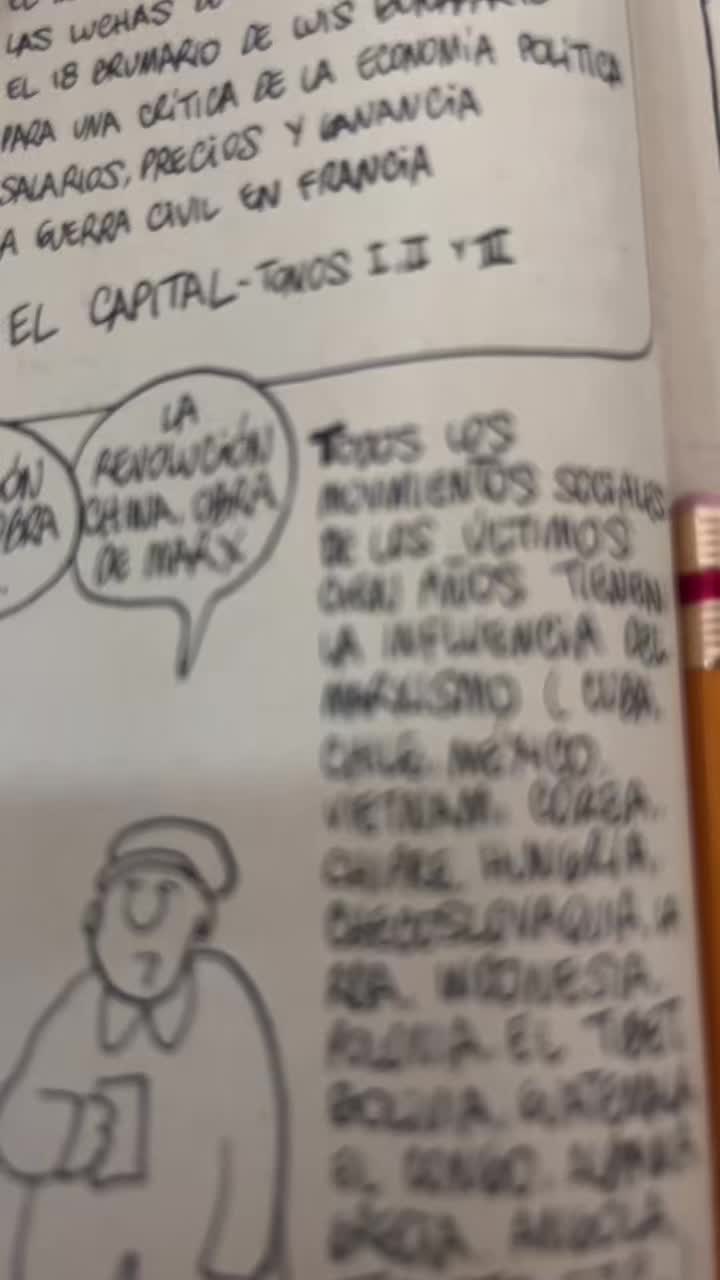 LAS LUCHAS DE
EL 18 BRUMARIO DE LUIS BONAPARTE
PARA UNA CRÍTICA DE LA ECONOMÍA POLÍTICA
SALARIOS, PRECIOS Y GANANCIA
A GUERRA CIVIL EN FRANCIA
EL CAPITAL-TOMOS I.II Y III
ÓN
OBRA
LA
REVOLUCIÓN
CHINA. OBRA
DE MARX
TODOS LOS
MOVIMIENTOS SOCIALES
DE LOS ÚLTIMOS
CIEN AÑOS TIENEN
LA INFLUENCIA DEL
MARXISMO ( CUBA.
CHILE. MÉXICO.
VIETNAM. COREA.
CHIPRE. HUNGRÍA.
CHECOSLOVAQUIA. LA
INDONESIA.
POLONIA. EL TIBET
BOLIVIA. GUATEMALA
EL CONGO. ALEMANIA
GRECIA. ANGOLA